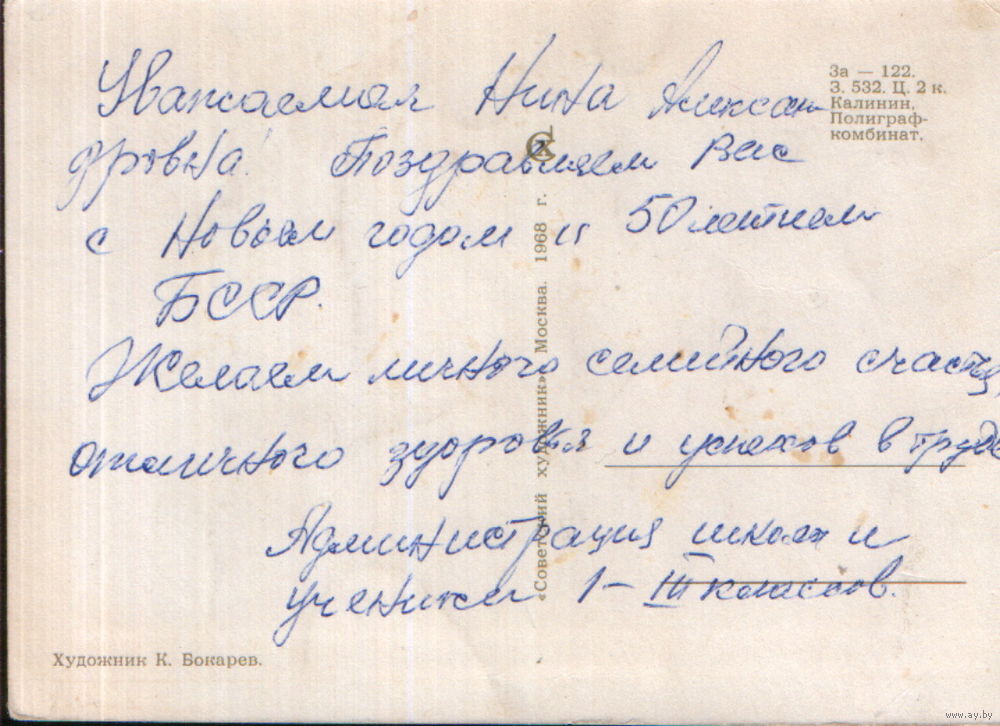 Уважаемая Нина Алексан-
дровна! Поздравляем Вас
с Новым годом и 50 летием
БССР.
Желаем личного семейного счастья,
отличного здоровья и успехов в труде
Администрация школы и
ученики I – III классов.
За — 122.
З. 532. Ц. 2 к.
Калинин,
Полиграф-
комбинат.
«Советский художник». Москва. 1968 г.
Художник К. Бокарев.
www.ay.by